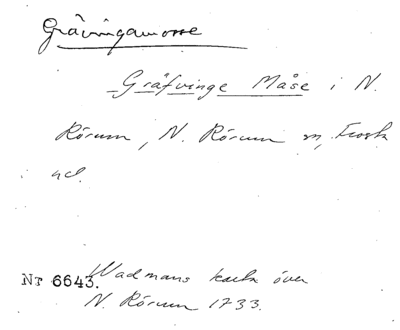 Grävingamosse
Gräfvinge Måse i N.
Rörum, N. Rörum sn, Frosta
hd.
Nr 6643. Wadmans karta över
N. Rörum 1733.